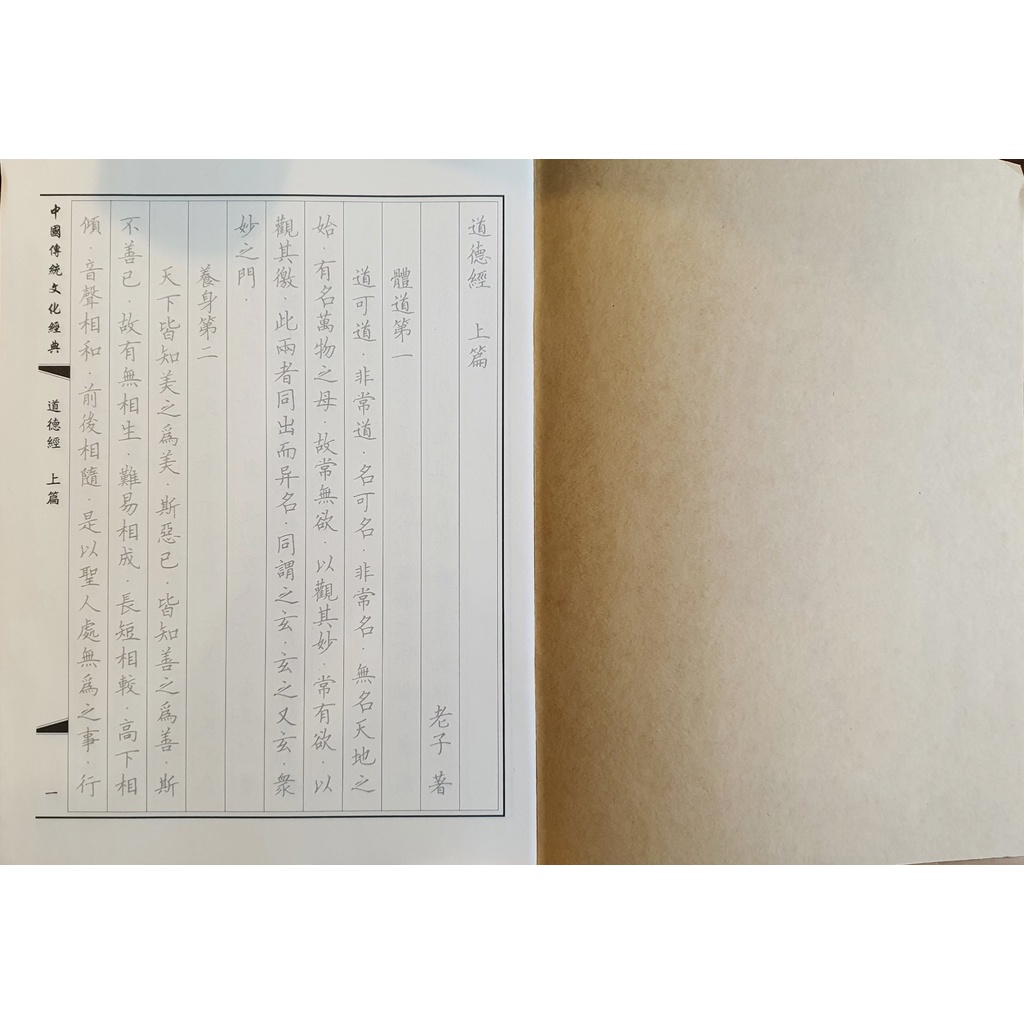 道德經 上篇
老子 著
體道第一
道可道．非常道．名可名．非常名．無名天地之
始．有名萬物之母．故常無欲．以觀其妙．常有欲．以
觀其徼．此兩者同出而异名．同謂之玄．玄之又玄．衆
妙之門．
養身第二
天下皆知美之爲美．斯惡已．皆知善之爲善．斯
不善已．故有無相生．難易相成．長短相較．高下相
傾．音聲相和．前後相隨．是以聖人處無爲之事．行
中國傳統文化經典
道德經 上篇
一